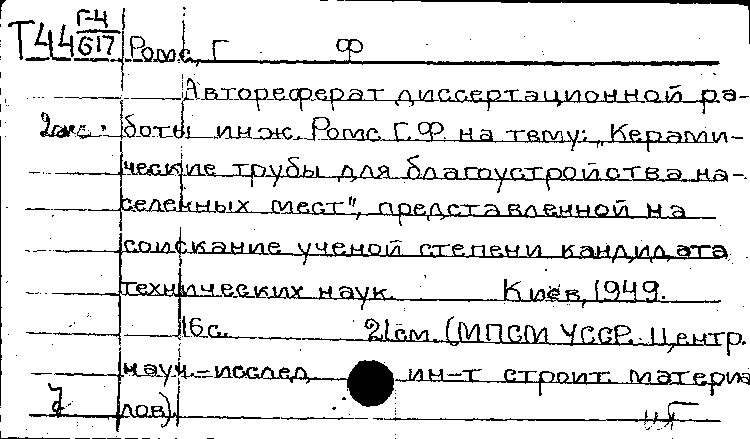 Т44 Г-4/617 Ромс, Г Ф
Автореферат диссертационной ра-
2экз. боты инж. Ромс Г.Ф. на тему: „Керами-
ческие трубы для благоустройства на-
селенных мест", представленной на
соискание ученой степени кандидата
технических наук. Киев, 1949.
16с. 21см. (МПСМ УССР. Центр.
науч.-исслед ин-т строит. материа
лов).